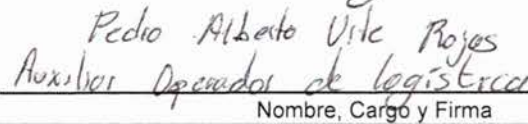 Pedro Alberto Urle Rojas
Auxiliar Operador de logística
Nombre, Cargo y Firma